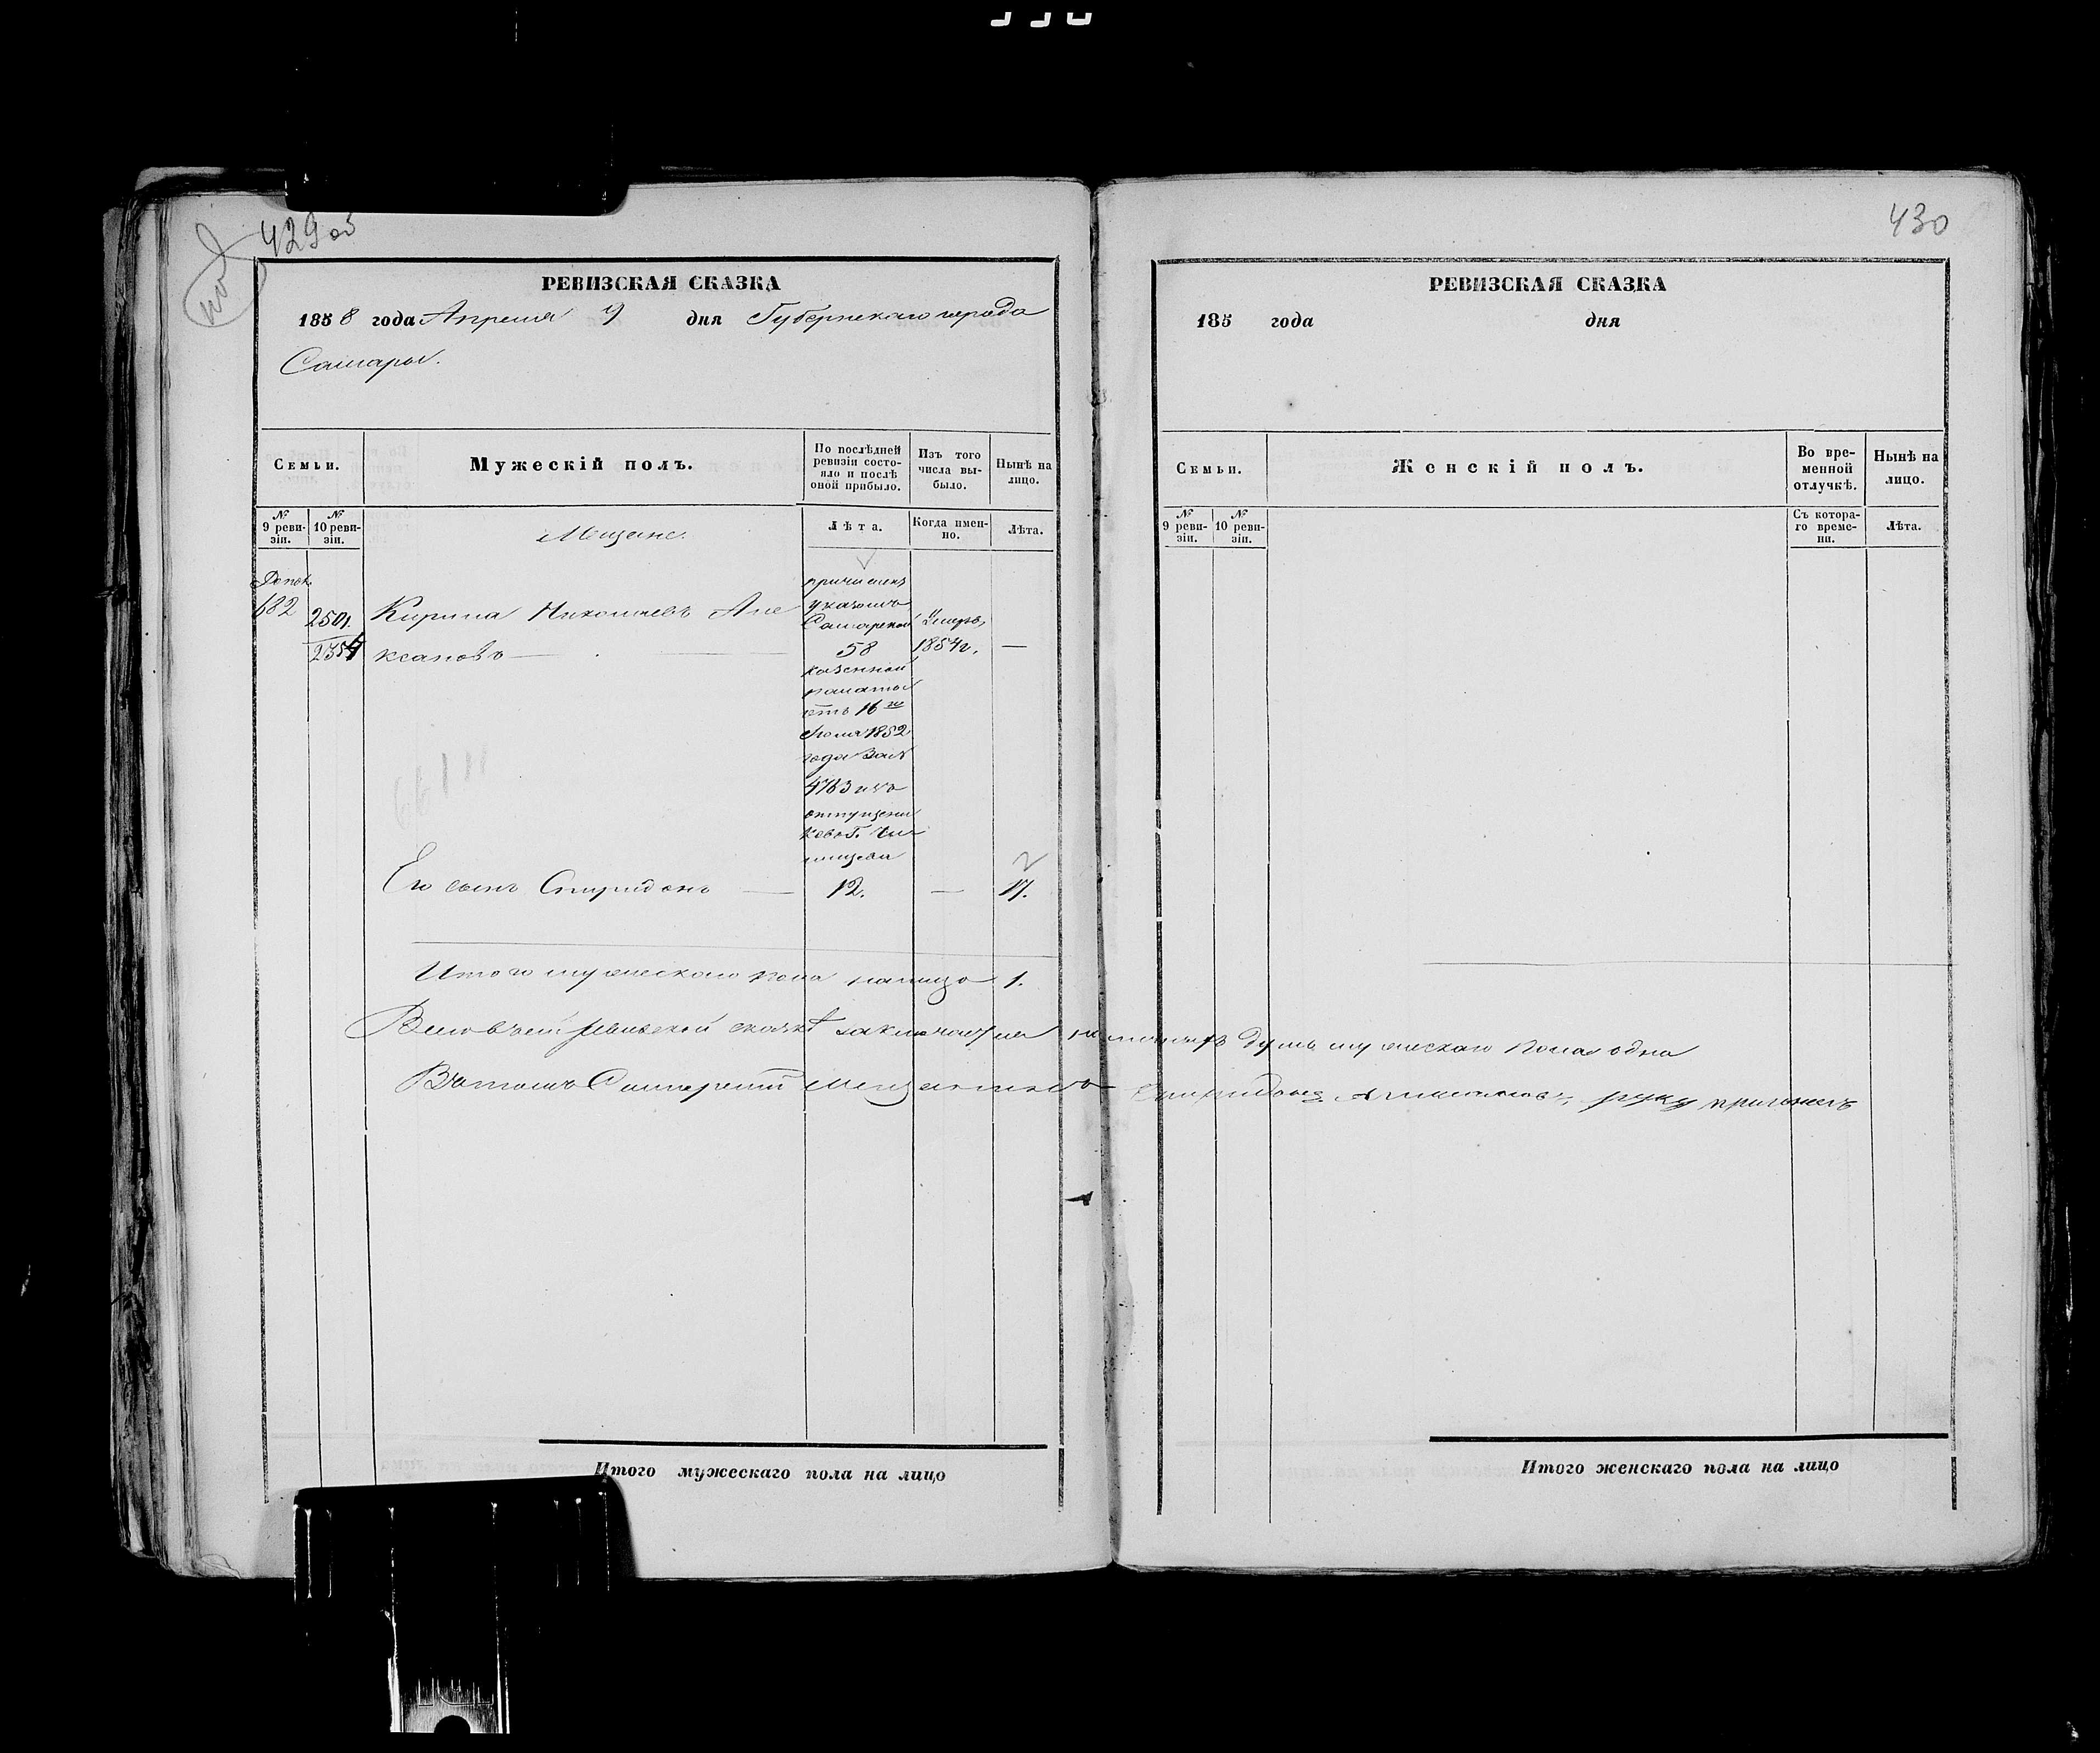 429 об
РЕВИЗСКАЯ СКАЗКА
1858 года Апреля 9 дня Губернскаго города
Самары.
Семьи.
Мужескій полъ.
По послѣдней ревизіи состояло и послѣ оной прибыло.
Изъ того числа выбыло.
Нынѣ на лицо.
№ 9 ревизіи.
№ 10 ревизіи.
Мещане.
Лѣта.
Когда именно.
Лѣта.
682
2501.
2354
Кирила Николаевъ Але
ксановъ
причисленъ
указомъ
Самарской
58
казенной
палаты
отъ 16 го
Июля 1852
года за №
4783 изъ
Умеръ
1854 г.
—
Его сынъ Спиридонъ — 12. — 17.
Итого мужескаго пола налицо 1.
Ревизской сказкѣ заключается налицо душъ мужескаго пола одна
Самарскій Мещанинъ Спиридонъ руку приложилъ
Итого мужескаго пола на лицо
430
РЕВИЗСКАЯ СКАЗКА
185 года дня
Семьи.
Женскій полъ.
Во временной отлучкѣ.
Нынѣ на лицо.
№ 9 ревизіи.
№ 10 ревизіи.
Съ котораго времени.
Лѣта.
Итого женскаго пола на лицо